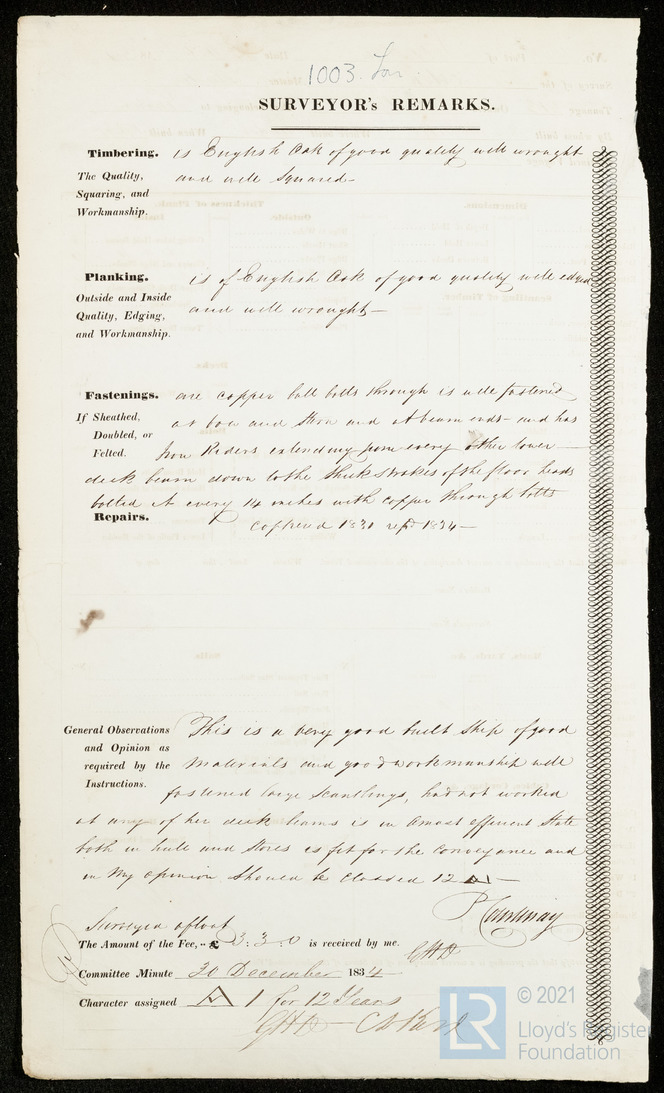 1003. Lon
SURVEYOR's REMARKS.
Timbering. is English Oak of good quality well wrought
The Quality, and well squared-
Squaring, and
Workmanship.
Planking. is of English Oak of good quality well edged
Outside and Inside
Quality, Edging, and well wrought-
and Workmanship.
Fastenings. are copper bolts through is well fastened
If Sheathed, at bow and Stern and at beam ends- and has
Doubled, or
Felted. Iron Riders extending from every other lower
deck beam down to the thick strokes of the floor heads
bolted at every 14 inches with copper through bolts
Repairs. Coppered 1831 repd 1834-
General Observations This is a very good built Ship of good
and Opinion as
required by the materials and good workmanship well
Instructions. fastened large Scantlings, has not worked
at any of her deck beams is in a most efficient State
both in hull and Stores is fit for the Conveyance and
in My opinion Should be Classed 12 A1-
P Courtenay
Surveyed afloat
The Amount of the Fee, -- £ 3.3.0 is received by me.
GHD
Committee Minute 30 December 1834
Character assigned A 1 for 12 Years
GHD-
© 2021
LR
Lloyd's Register
Foundation